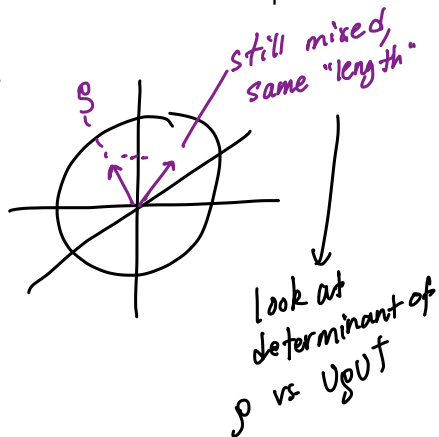 ρ
still mixed,
same "length"
look at
determinant of
ρ vs UρU†